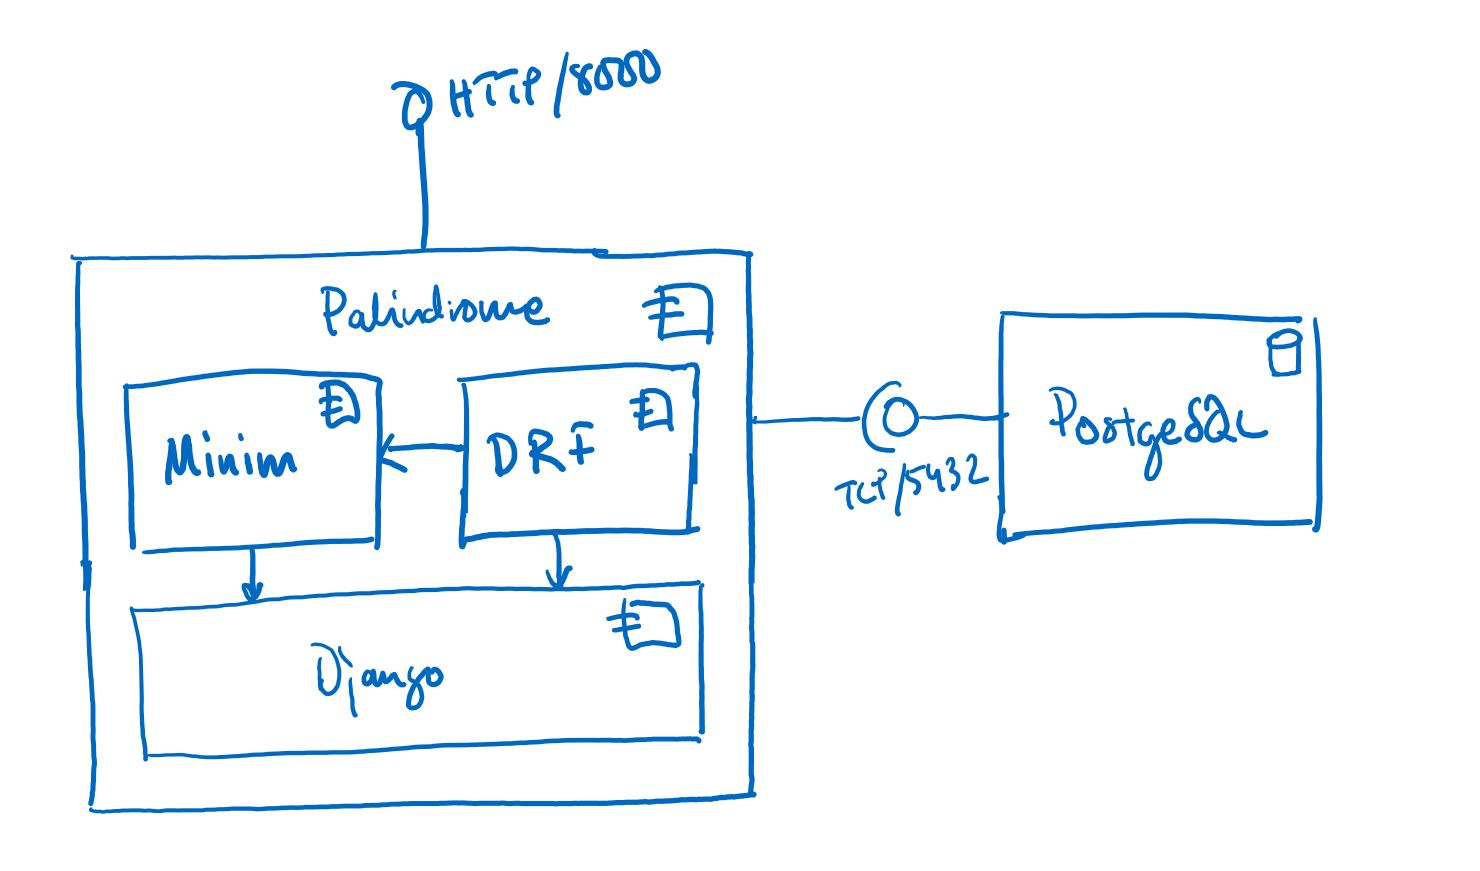 HTTP/8000
Palindrome
Minim
DRF
Django
TCP/5432
PostgeSQL